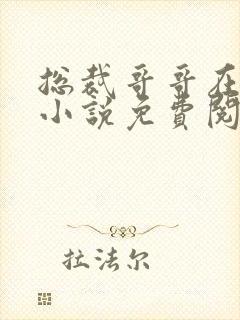 总裁哥哥在
小说免費阅
拉法尔